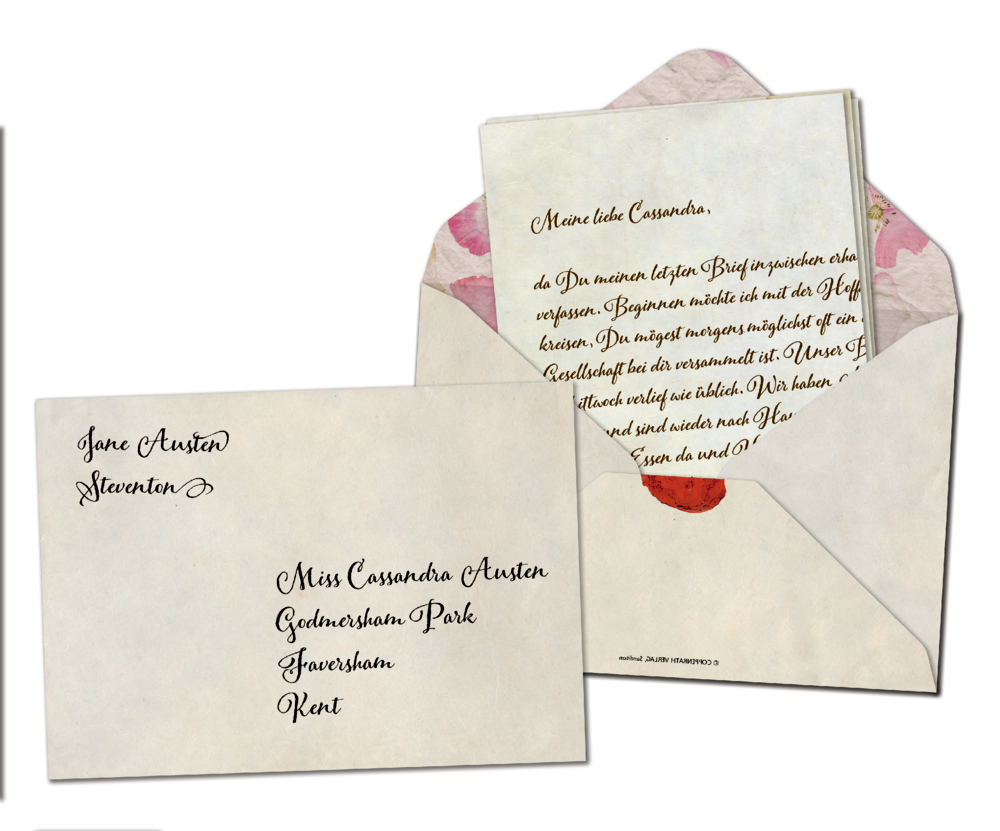 Jane Austen
Steventon
Miss Cassandra Austen
Godmersham Park
Faversham
Kent
Meine liebe Cassandra,
da Du meinen letzten Brief inzwischen erha
verfassen. Beginnen möchte ich mit der Hoff
kreisen, Du mögest morgens möglichst oft ein
Gesellschaft bei dir versammelt ist. Unser B
ittwoch verlief wie üblich. Wir haben
und sind wieder nach Ha
Essen da und
© COPPENRATH VERLAG, Sanditon